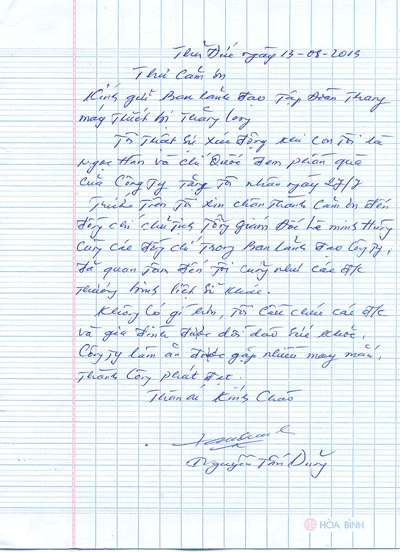 Thủ Đức ngày 13-08-2013
Thư Cảm ơn
Kính gửi Ban lãnh đạo Tập Đoàn Thang
máy Thiết bị Thăng long
Tôi Thật Sự xúc động khi con Tôi là
Ngọc Hân và chú Quốc Đem phần quà
của Công Ty Tặng Tôi nhân ngày 27/7
Trước Tiên Tôi xin chân Thành Cảm ơn đến
đồng chí chủ Tịch Tổng giám Đốc Lê minh Hùng
Cùng các đồng chí Trong Ban lãnh đạo Công Ty,
đã quan Tâm đến Tôi cũng như các đ/c
Thương binh liệt Sĩ khác.
Không có gì hơn, Tôi cầu chúc các đ/c
và gia đình được dồi dào Sức khỏe,
Công Ty làm ăn được gặp nhiều may mắn,
Thành Công phát đạt.
Thân ái Kính Chào
Nguyễn Tấn Dũng
HÒA BÌNH